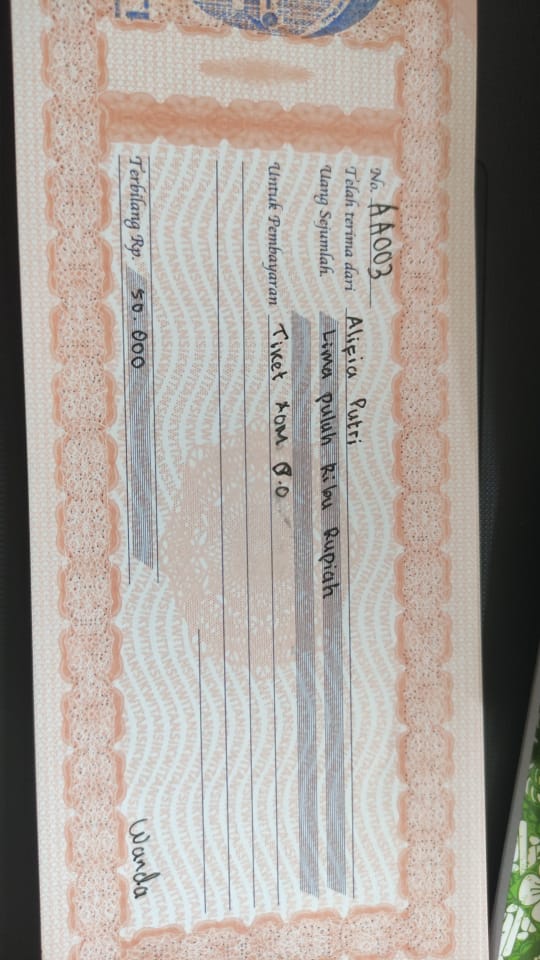 No. AA003
Telah terima dari Alifia Putri
Uang Sejumlah Lima puluh Ribu Rupiah
Untuk Pembayaran Tiket XOM 8.0
Terbilang Rp. 50.000
Wanda